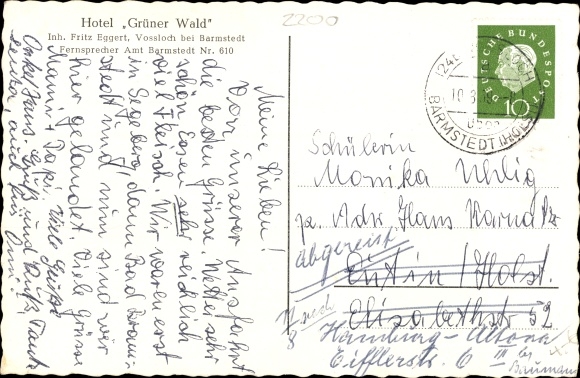 Hotel „Grüner Wald"
Inh. Fritz Eggert, Vossloch bei Barmstedt
Fernsprecher Amt Barmstedt Nr. 610
2200
Meine Lieben!
Von unserer Ausfahrt
die besten Grüsse. Wetter sehr
schön. Essen sehr reichlich
viel Fleisch. Wir waren erst
in Segeberg, dann Bad Bram-
stedt und nun sind wir
hier gelandet. Viele Grüsse
Mami + Papi. Viele Grüsse
Onkel Hans Gruß und Kuß, Tante
DEUTSCHE BUNDESPOST
10
BARMSTEDT (HOLST)
Schülerin
Monika Uhlig
p. Adr. Hans
abgereist
Eutin/Holst.
Elisabethstr 52
nach
Hamburg-Altona
Eifflerstr. 6 III
bei
Baumann